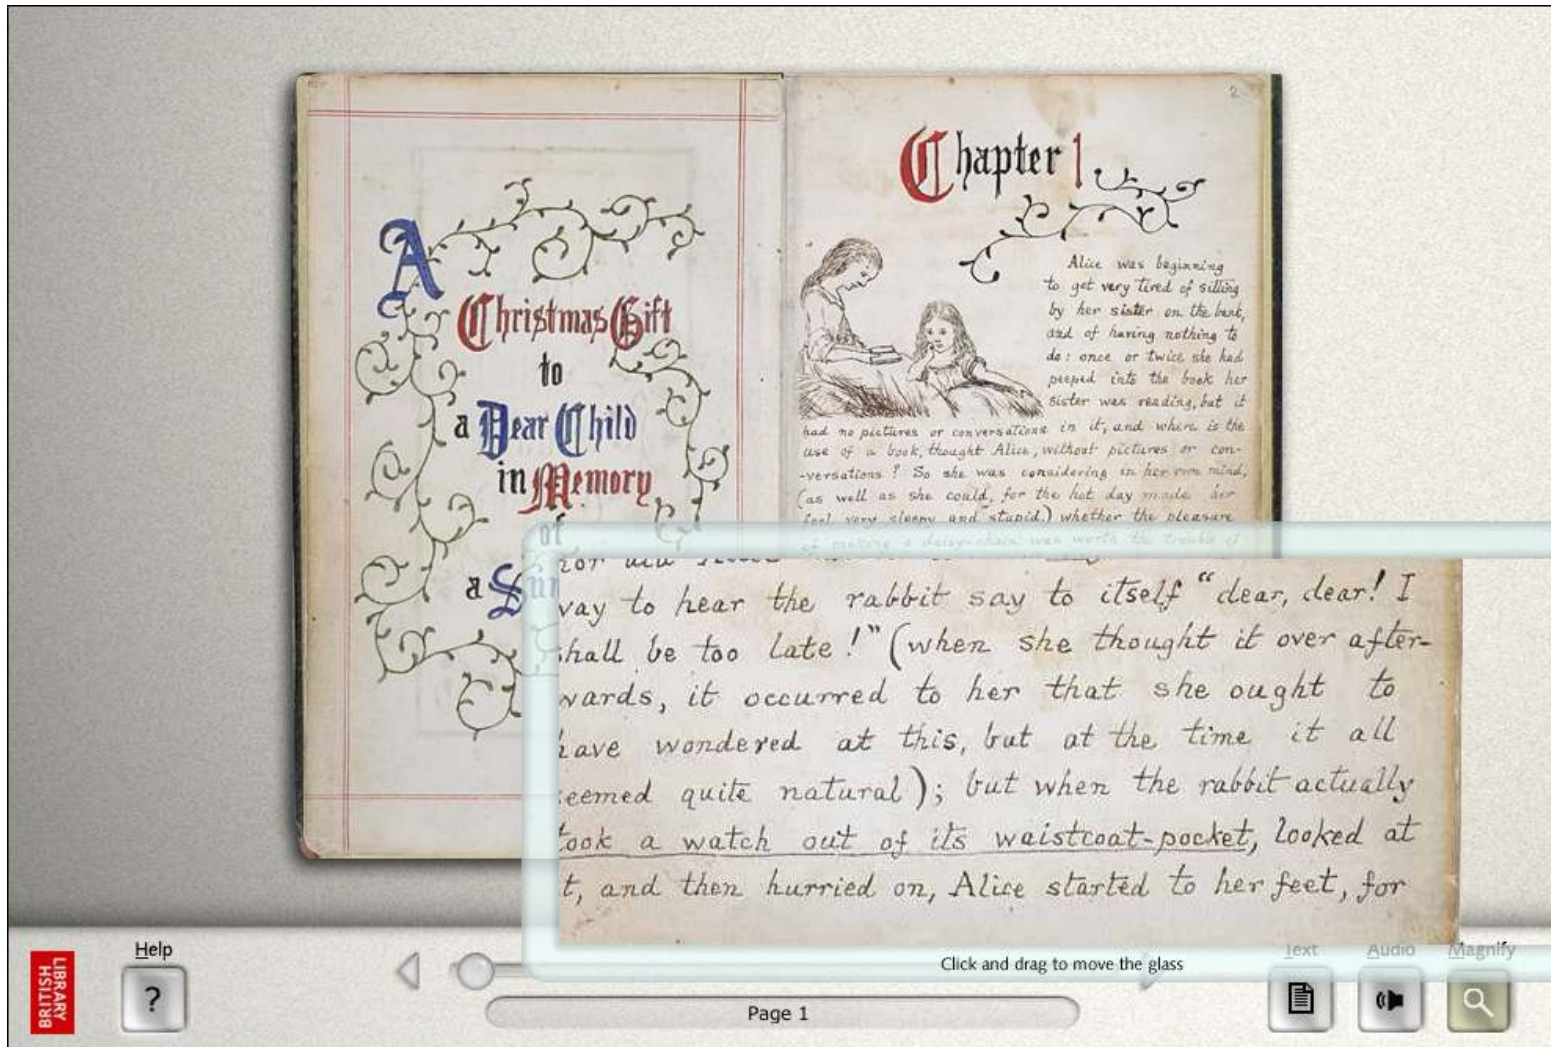 A
Christmas Gift
to
a Dear Child
in Memory
of
a
2
Chapter 1
Alice was beginning
to get very tired of sitting
by her sister on the bank,
and of having nothing to
do: once or twice she had
peeped into the book her
sister was reading, but it
had no pictures or conversations in it, and where is the
use of a book, thought Alice, without pictures or con-
-versations? So she was considering in her own mind,
(as well as she could, for the hot day made her
feel very sleepy and stupid,) whether the pleasure
of making a daisy-chain was worth the trouble of
way to hear the rabbit say to itself "dear, dear! I
shall be too late!" (when she thought it over after-
wards, it occurred to her that she ought to
have wondered at this, but at the time it all
seemed quite natural); but when the rabbit actually
took a watch out of its waistcoat-pocket, looked at
t, and then hurried on, Alice started to her feet, for
Click and drag to move the glass
BRITISH
LIBRARY
Help
?
Page 1
Text
Audio
Magnify